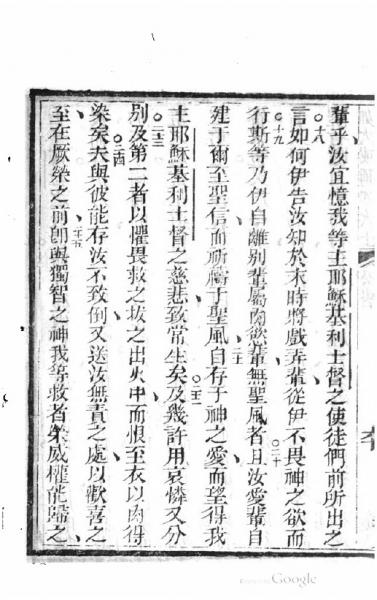 輩乎汝宜憶我等主耶穌基利士督之使徒們前所出之
○十八
言如何伊告汝知於末時將戲弄輩從伊不畏神之欲而
○十九
行斯等乃伊自離別輩屬肉欲輩無聖風者且汝愛輩自
○二十
建于爾至聖信而祈禱于聖風自存于神之愛而望得我
○二一
主耶穌基利士督之慈悲致常生矣及幾許用哀憐又分
○二二
○二三
別及第二者以懼畏救之拔之出火中而恨至衣以肉得
染矣夫與彼能存汝不致倒又送汝無責之處以歡喜之
○二四
至在厥榮之前卽與獨智之神我等救者榮威權能歸之
○二五
Google